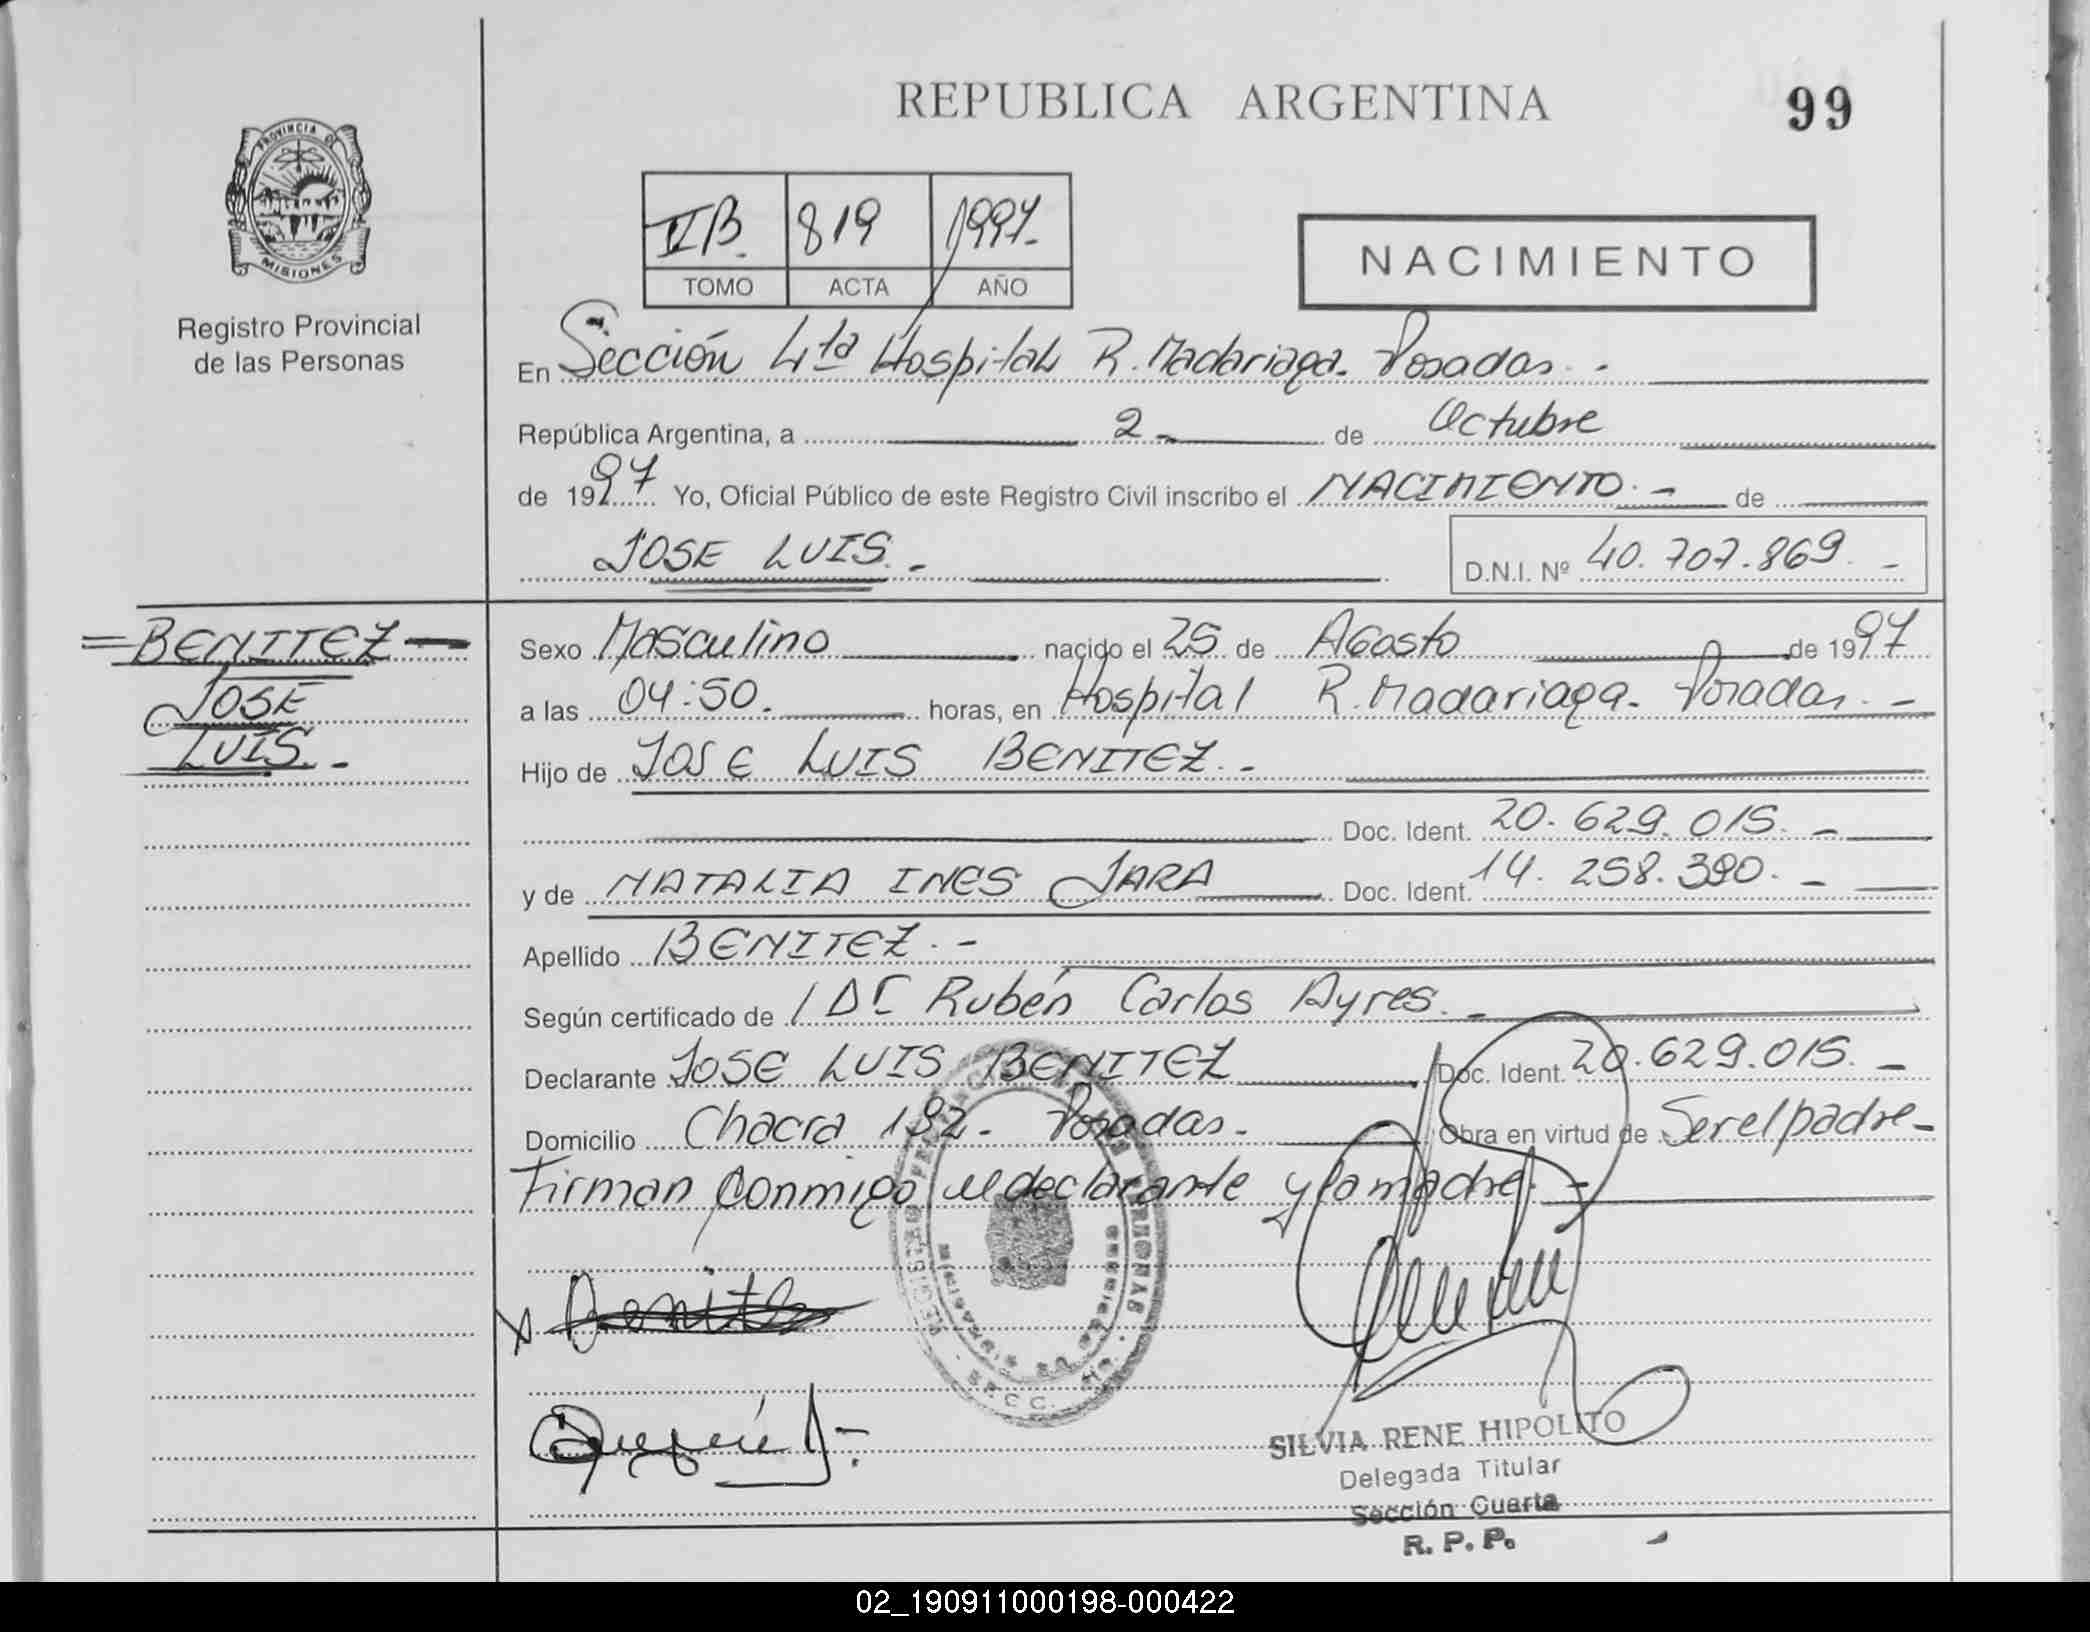 REPUBLICA ARGENTINA
99
PROVINCIA DE
MISIONES
Registro Provincial
de las Personas
IIB. 819 1997.
TOMO ACTA AÑO
NACIMIENTO
En Sección 4ta Hospital R. Madariaga. Posadas. -
República Argentina, a 2 - de Octubre
de 1997 Yo, Oficial Público de este Registro Civil inscribo el NACIMIENTO. - de
JOSE LUIS. - D.N.I. Nº 40.707.869. -
= BENITEZ —
JOSE
LUIS. -
Sexo Masculino nacido el 25 de Agosto de 1997
a las 04:50. horas, en Hospital R. Madariaga. Posadas. -
Hijo de JOSE LUIS BENITEZ. -
Doc. Ident. 20.629.015. -
y de NATALIA INES JARA Doc. Ident. 14.258.390. -
Apellido BENITEZ. -
Según certificado de / Dr Rubén Carlos Ayres. -
Declarante JOSE LUIS BENITEZ Doc. Ident. 20.629.015. -
Domicilio Chacra 192. Posadas. - Obra en virtud de Ser el padre -
Firman conmigo el declarante y la madre. -
x Benite
SILVIA RENE HIPOLITO
Delegada Titular
Sección Cuarta
R. P. P.
02_190911000198-000422